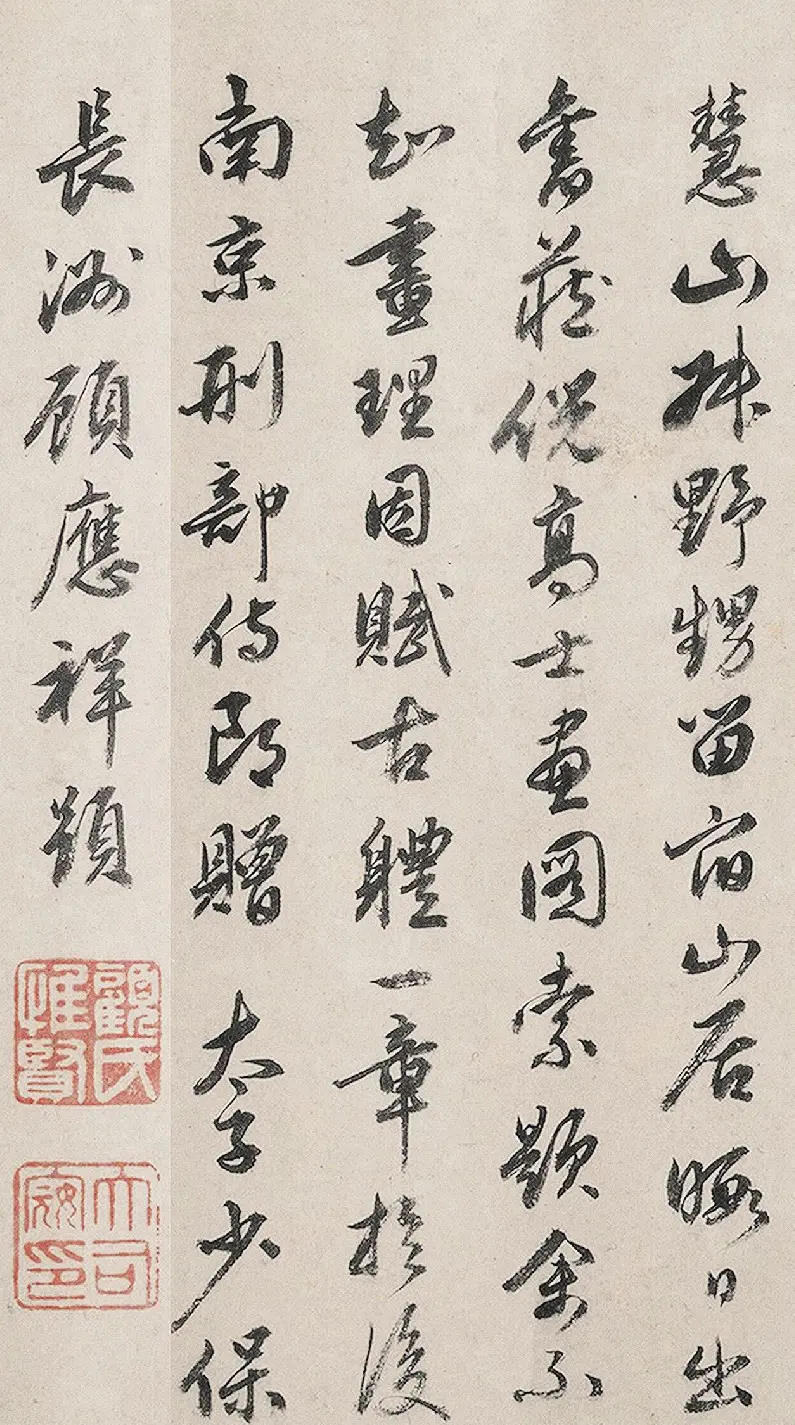 慧山野甥留宿山居暇日出
舊藏倪高士畫圖索題余不
知畫理因賦古體一章於後
南京刑部侍郎贈 太子少保
長洲顧應祥題
顧氏惟賢
大司寇印